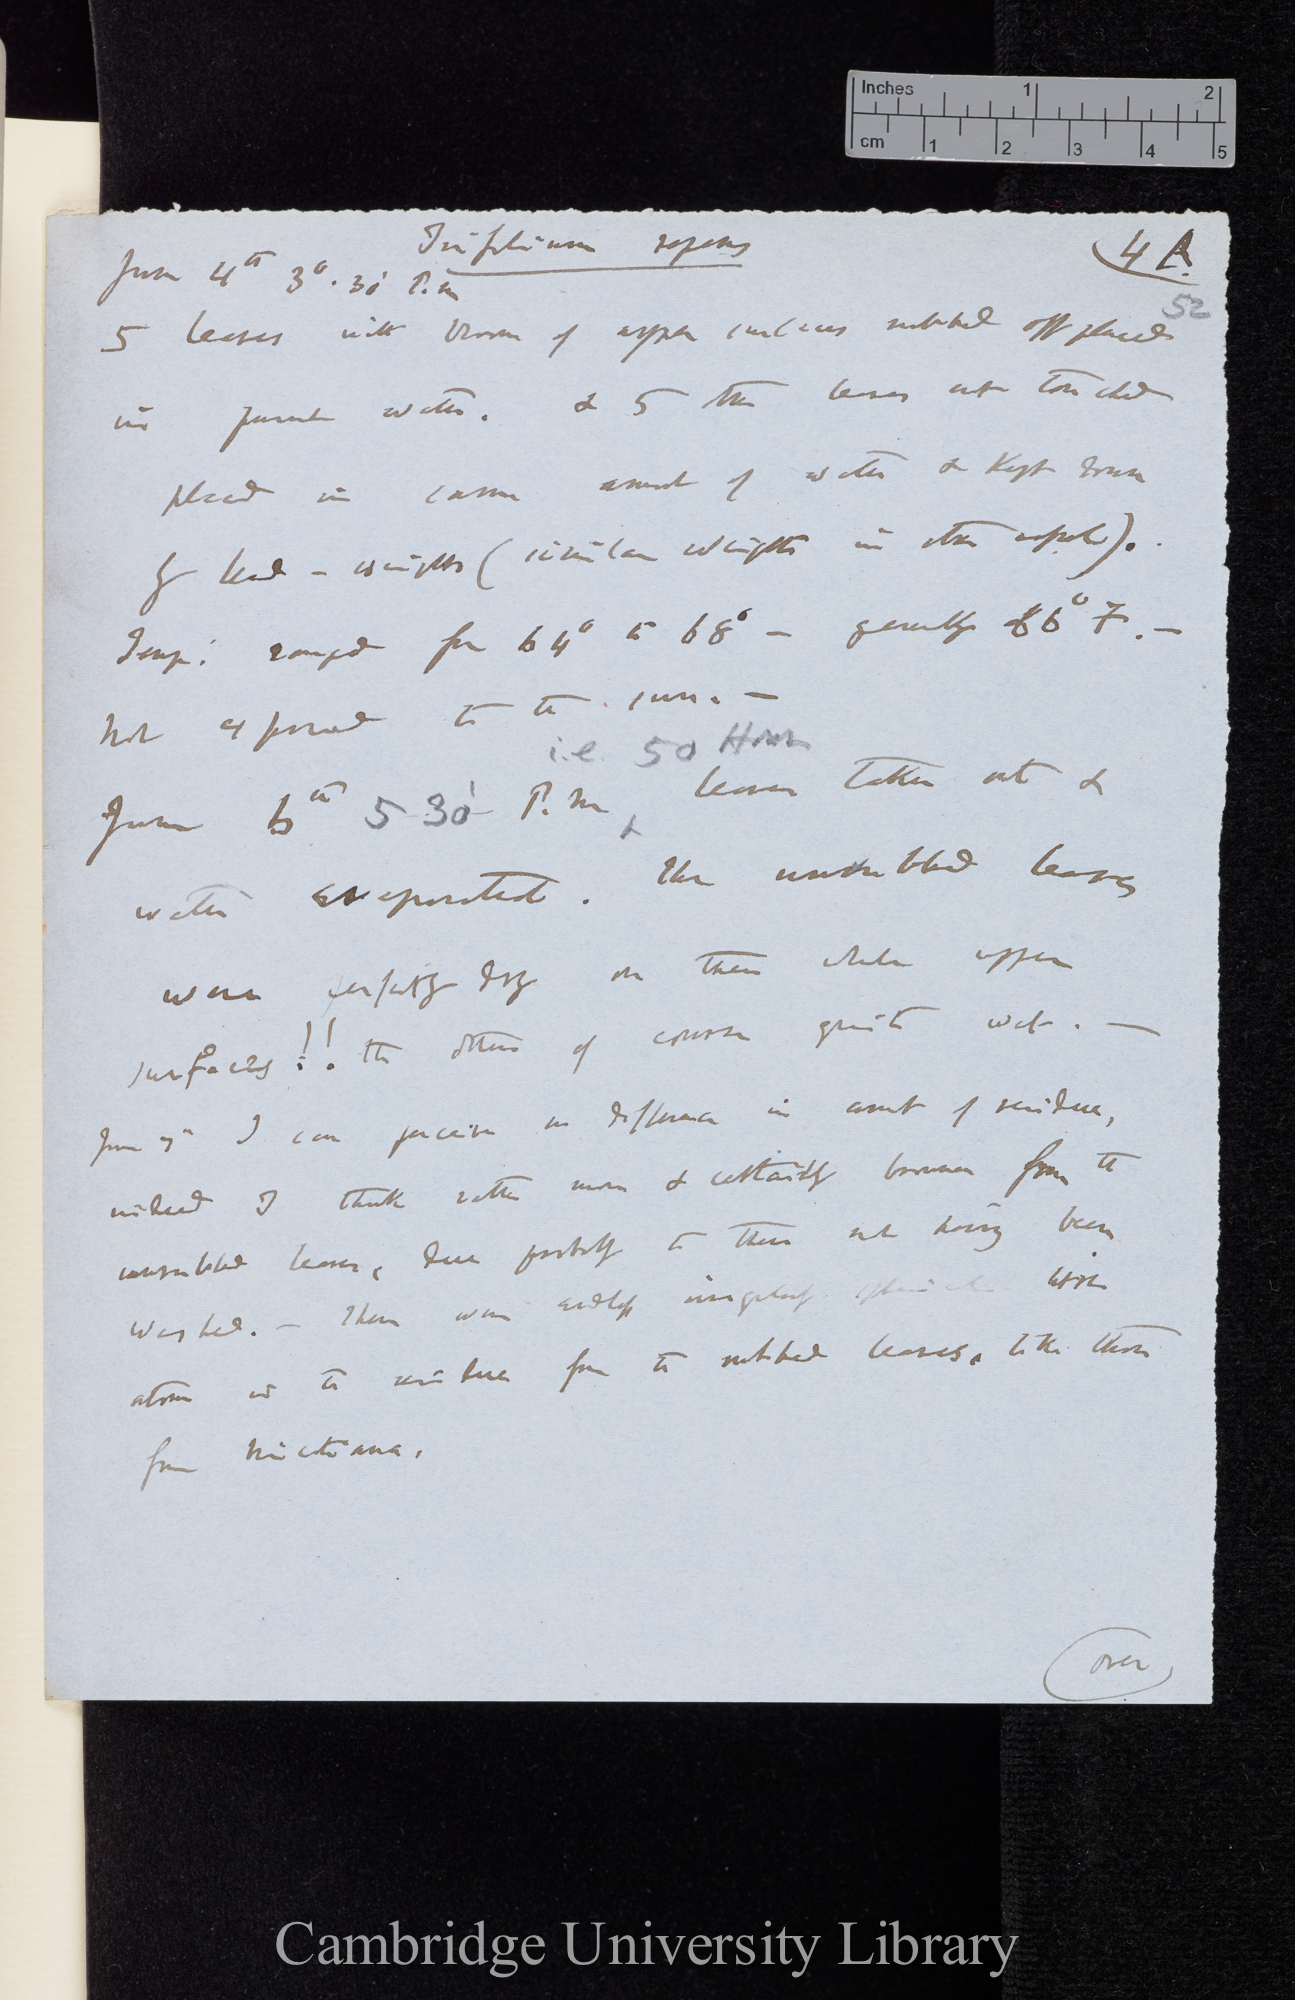 Inches 1 2
cm 1 2 3 4 5
Trifolium repens
4 A.
52
June 4th 3°. 30' P.m
5 leaves with bloom of upper surfaces rubbed off placed
in water. & 5 other leaves not touched
placed in same amount of water & kept down
by lead-weights (similar weights in other ).
Temp: ranged from 64° to 68° — generally 66° 7. —
Not exposed to the sun. —
i.e. 50 Hours
June 6th 5 30' P.m, leaves taken out &
water evaporated. The unrubbed leaves
were perfectly dry on their whole upper
surfaces!! The others of course quite wet. —
June 7th I can perceive no difference in amount of residue,
indeed I think rather more & certainly browner from the
unrubbed leaves, due probably to their not having been
washed. — There were
atoms in the residue from the rubbed leaves, like those
from Nicotiana.
over
Cambridge University Library